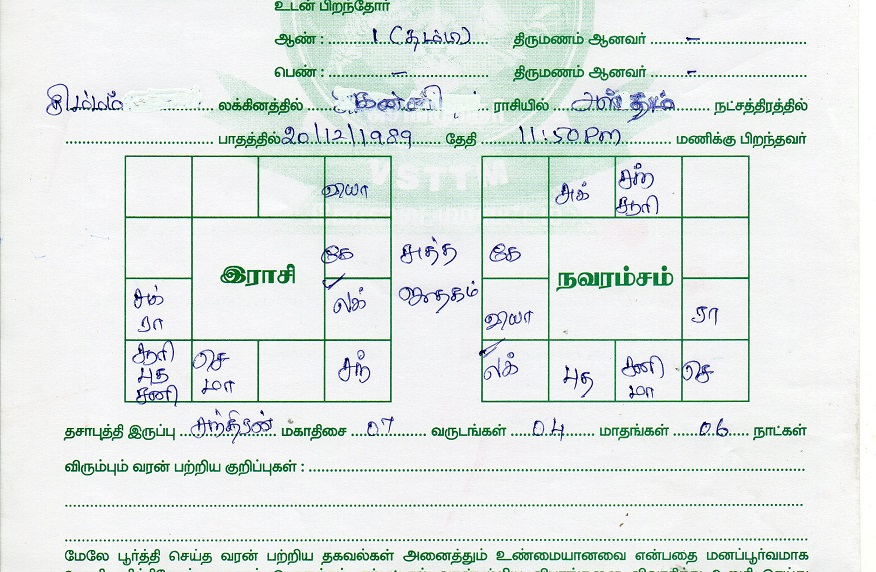 உடன் பிறந்தோர்
ஆண் : 1 (தம்பி) திருமணம் ஆனவர் –
பெண் : – திருமணம் ஆனவர் –
சிம்மம் லக்கினத்தில் கன்னி ராசியில் அஸ்தம் நட்சத்திரத்தில்
பாதத்தில் 20/12/1989 தேதி 11:50 PM மணிக்கு பிறந்தவர்
VSTTM
வியா அக் சந் சூரி
கே சுத்த கே
இராசி ஜாதகம் நவரம்சம்
சுக் ரா லக் வியா ரா
சூரி புத சனி செ மா சந் லக் புத சனி மா செ
தசாபுத்தி இருப்பு சந்திரன் மகாதிசை 07 வருடங்கள் 04 மாதங்கள் 06 நாட்கள்
விரும்பும் வரன் பற்றிய குறிப்புகள் :
மேலே பூர்த்தி செய்த வரன் பற்றிய தகவல்கள் அனைத்தும் உண்மையானவை என்பதை மனப்பூர்வமாக